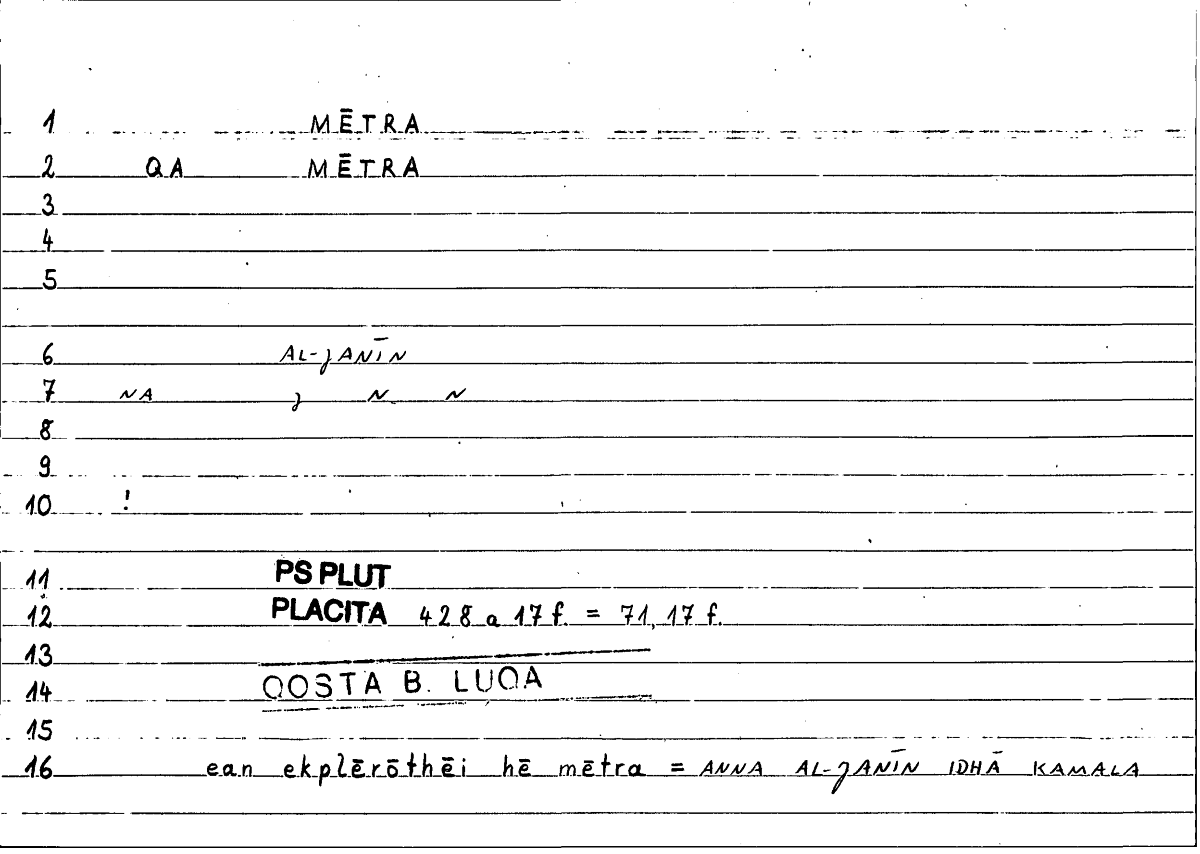 1 MĒTRA
2 QA MĒTRA
3
4
5
6 AL-JANĪN
7 NA J N N
8
9
10 !
11 PS PLUT
12 PLACITA 428 a 17 f. = 71,17 f.
13
14 QOSTA B. LUQA
15
16 ean ekplērōthēi hē mētra = ANNA AL-JANĪN IDHĀ KAMALA